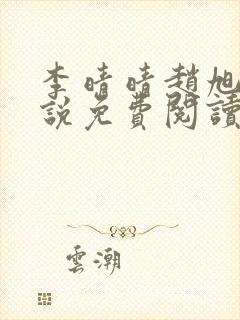 李晴晴趙旭
說免費閱讀
雲潮